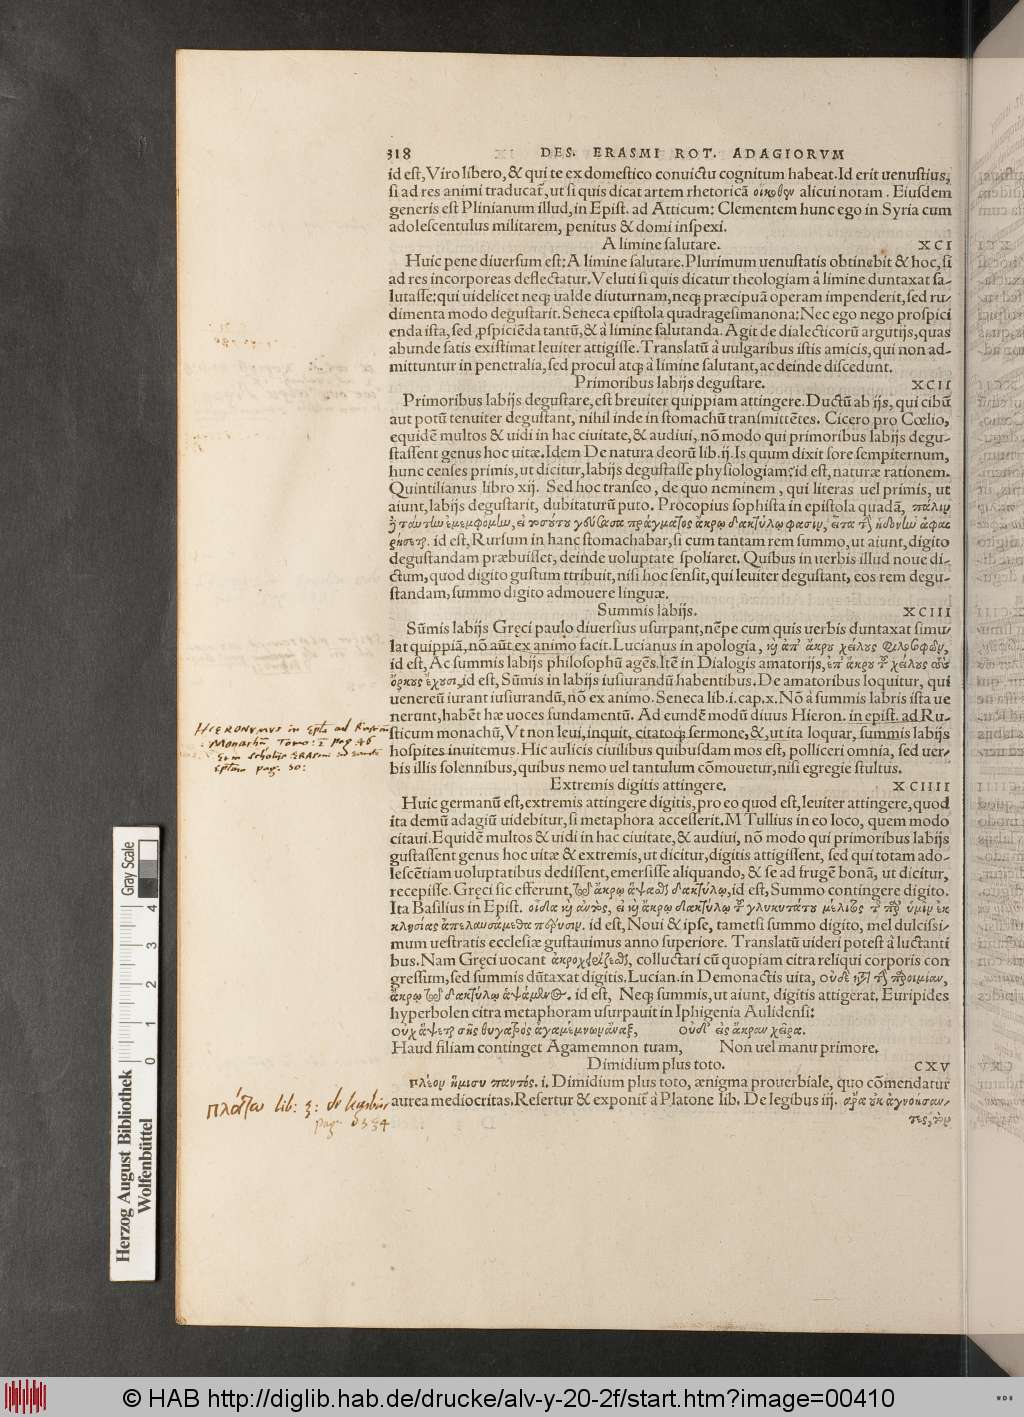 318 DES. ERASMI ROT. ADAGIORVM
id est, Viro libero, & qui te ex domestico conuictu cognitum habeat. Id erit uenustius,
si ad res animi traducat̃, ut si quis dicat artem rhetoricã οἴκοθεν alicui notam. Eiusdem
generis est Plinianum illud, in Epist. ad Atticum: Clementem hunc ego in Syria cum
adolescentulus militarem, penitus & domi inspexi.
A limine salutare. XCI
Huic pene diuersum est: A limine salutare. Plurimum uenustatis obtinebit & hoc, si
ad res incorporeas deflectatur. Veluti si quis dicatur theologiam à limine duntaxat sa-
lutasse: qui uidelicet neq; ualde diuturnam, neq; præcipuã operam impenderit, sed ru-
dimenta modo degustarit. Seneca epistola quadragesimanona: Nec ego nego prospici
enda ista, sed ꝓspiciẽda tantũ, & à limine salutanda. Agit de dialecticorũ argutijs, quas
abunde satis existimat leuiter attigisse. Translatũ à uulgaribus istis amicis, qui non ad-
mittuntur in penetralia, sed procul atq; à limine salutant, ac deinde discedunt.
Primoribus labijs degustare. XCII
Primoribus labijs degustare, est breuiter quippiam attingere. Ductũ ab ijs, qui cibũ
aut potũ tenuiter degustant, nihil inde in stomachũ transmittẽtes. Cicero pro Cœlio,
equidẽ multos & uidi in hac ciuitate, & audiui, nõ modo qui primoribus labijs degu-
stassent genus hoc uitæ. Idem De natura deorũ lib. ij. Is quum dixit fore sempiternum,
hunc censes primis, ut dicitur, labijs degustasse physiologiam? id est, naturæ rationem.
Quintilianus libro xij. Sed hoc transeo, de quo neminem, qui literas uel primis, ut
aiunt, labijs degustarit, dubitaturũ puto. Procopius sophista in epistola quadã, πάλιν
ἢ ταύτην ἐμεμφόμην, εἰ τοσούτου γεύσασα πράγματος ἄκρῳ δακτύλῳ φασὶν, εἶτα τὴν ἡδονὴν ἀφαι
ρήσεται. id est, Rursum in hanc stomachabar, si cum tantam rem summo, ut aiunt, digito
degustandam præbuisset, deinde uoluptate spoliaret. Quibus in uerbis illud noue di-
ctum, quod digito gustum ttribuit, nisi hoc sensit, qui leuiter degustant, eos rem degu-
standam, summo digito admouere linguæ.
Summis labijs. XCIII
Sũmis labijs Gręci paulo diuersius usurpant, nẽpe cum quis uerbis duntaxat simu-
lat quippiã, nõ aũt ex animo facit. Lucianus in apologia, καὶ ἀπ' ἄκρου χείλους φιλοσοφῶν,
id est, Ac summis labijs philosophũ agẽs. Itẽ in Dialogis amatorijs, ἐπ' ἄκρου τοῦ χείλους τοὺς
ὅρκους ἔχουσι, id est, Sũmis in labijs iusiurandũ habentibus. De amatoribus loquitur, qui
uenereũ iurant iusiurandũ, nõ ex animo. Seneca lib. i. cap. x. Nõ à summis labris ista ue
nerunt, habẽt hæ uoces fundamentũ. Ad eundẽ modũ diuus Hieron. in epist. ad Ru-
sticum monachũ, Vt non leui, inquit, citatoq; sermone, &, ut ita loquar, summis labijs
hospites inuitemus. Hic aulicis ciuilibus quibusdam mos est, polliceri omnia, sed uer-
bis illis solennibus, quibus nemo uel tantulum cõmouetur, nisi egregie stultus.
HIERONYMVS in Epla ad Rusticum
Monachũ Tomo: 1 pag 46
Etm Scholijs ERAsmi in eandē
Eplam pag: 50:
Extremis digitis attingere. XCIIII
Huic germanũ est, extremis attingere digitis, pro eo quod est, leuiter attingere, quod
ita demũ adagiũ uidebitur, si metaphora accesserit. M Tullius in eo loco, quem modo
citaui. Equidẽ multos & uidi in hac ciuitate, & audiui, nõ modo qui primoribus labijs
gustassent genus hoc uitæ & extremis, ut dicitur, digitis attigissent, sed qui totam ado-
lescẽtiam uoluptatibus dedissent, emersisse aliquando, & se ad frugẽ bonã, ut dicitur,
recepisse. Gręci sic efferunt, τῷ ἄκρῳ ἅψασθαι δακτύλῳ, id est, Summo contingere digito.
Ita Basilius in Epist. οἶδα καὶ αὐτὸς, εἰ καὶ ἄκρῳ δακτύλῳ τοῦ γλυκυτάτου μέλιτος τῆς παρ' ὑμῖν ἐκ
κλησίας ἀπελαυσάμεθα πέρυσιν. id est, Noui & ipse, tametsi summo digito, mel dulcissi-
mum uestratis ecclesiæ gustauimus anno superiore. Translatũ uideri potest à luctanti
bus. Nam Gręci uocant ἀκροχειρίζεσθαι, colluctari cũ quopiam citra reliqui corporis con
gressum, sed summis dũtaxat digitis. Lucian. in Demonactis uita, οὐδὲ κατὰ τὴν παροιμίαν,
ἄκρῳ τῷ δακτύλῳ ἁψάμενος. id est, Neq; summis, ut aiunt, digitis attigerat. Euripides
hyperbolen citra metaphoram usurpauit in Iphigenia Aulidensi:
οὐχ ἅψεται σῆς θυγατρὸς ἀγαμέμνων ἄναξ, οὐδ' εἰς ἄκραν χεῖρα.
Haud filiam continget Agamemnon tuam, Non uel manu primore.
Dimidium plus toto. CXV
πλέον ἥμισυ παντός. i. Dimidium plus toto, ænigma prouerbiale, quo cõmendatur
aurea mediocritas. Refertur & exponit̃ à Platone lib. De legibus iij. ἆρα οὐκ ἀγνοήσαν-
τες, τὸν
Πλάτων lib: 3: de legibus
pag: 534
Herzog August Bibliothek
Wolfenbüttel
Gray Scale
0 1 2 3 4
© HAB http://diglib.hab.de/drucke/alv-y-20-2f/start.htm?image=00410